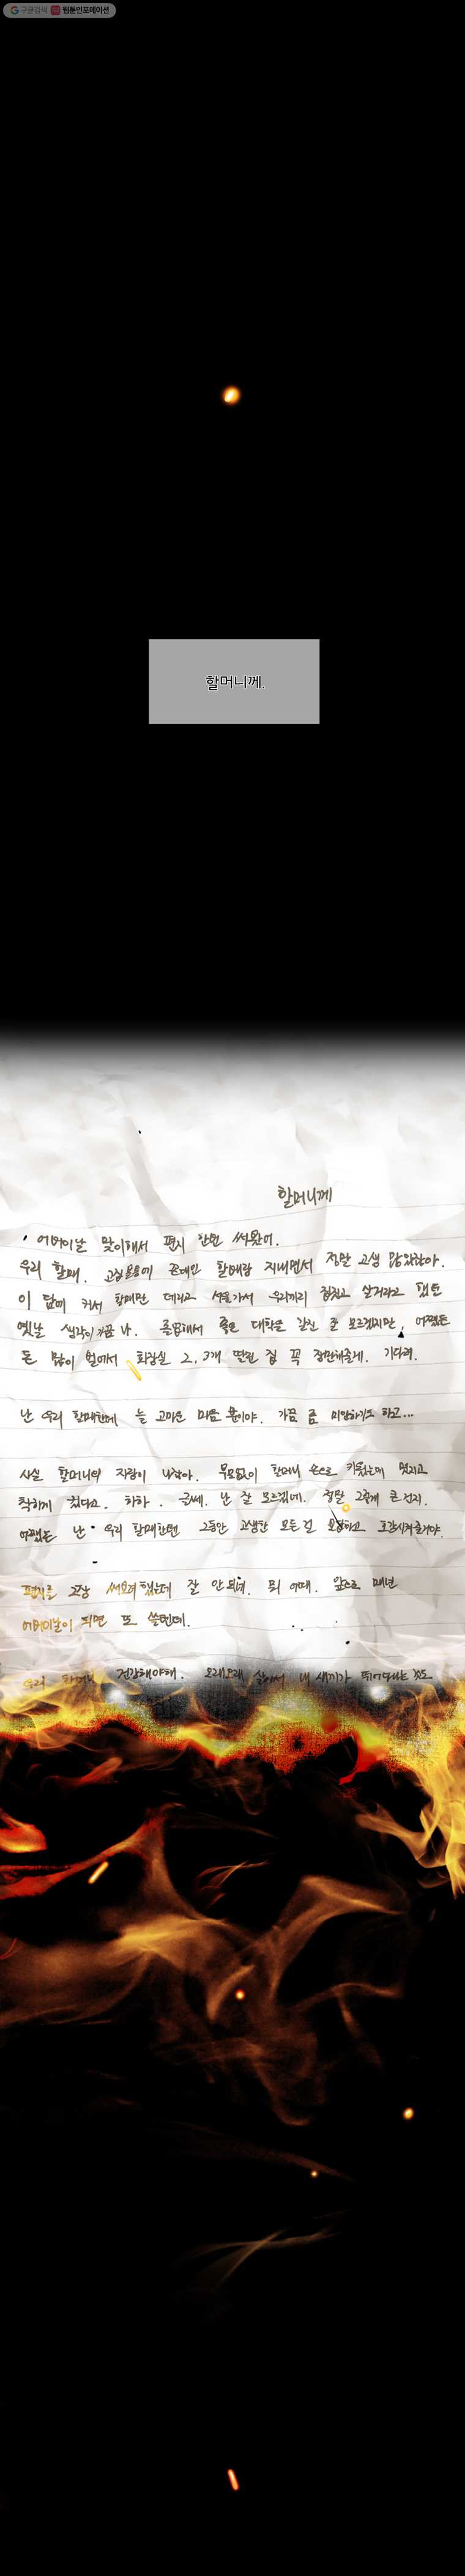 구글검색 웹툰인포메이션
할머니께.
할머니께
어버이날 맞이해서 편지 한번 써봤어.
우리 할매. 할매랑 지내면서 정말 고생 많았잖아.
이 담에 커서 할매만 데리고 서울가서 우리끼리 살거라고 했던
옛날 생각이 가끔 나. 졸업해서 좋은 대학을 갈진 잘 모르겠지만 어쨌든
돈 많이 벌어서 화장실 2, 3개 딸린 집 꼭 장만해줄게. 기다려.
난 우리 할매한테 늘 고마운 마음 뿐이야. 가끔 좀 미안하기도 하고...
사실 할머니의 자랑이 나잖아. 부모없이 할머니 손으로 키웠는데 멋지고
착하게 컸다고. 하하. 글쎄. 난 잘 모르겠네. 정말 그렇게 큰 건지.
어쨌든 난 우리 할매한텐 그동안 고생한 모든 걸 보답하고 호강시켜줄거야.
편지를 2장 써보려 했는데 잘 안되네. 뭐 어때. 앞으로 매년
어버이날이 되면 또 쓸텐데.
우리 할머니 건강해야해. 오래오래 살아서 내 새끼가 뛰어다니는 것도